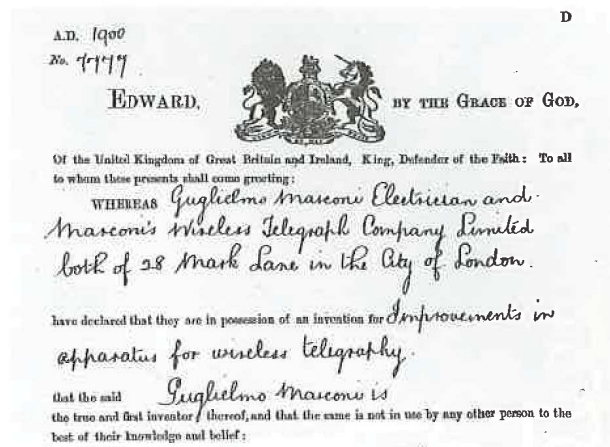 D
A.D. 1900
No. 7777
EDWARD, BY THE GRACE OF GOD,
Of the United Kingdom of Great Britain and Ireland, King, Defender of the Faith: To all
to whom these presents shall come greeting:
WHEREAS Guglielmo Marconi Electrician and
Marconi's Wireless Telegraph Company Limited
both of 28 Mark Lane in the City of London.
have declared that they are in possession of an invention for Improvements in
apparatus for wireless telegraphy.
that the said Guglielmo Marconi is
the true and first inventor thereof, and that the same is not in use by any other person to the
best of their knowledge and belief: